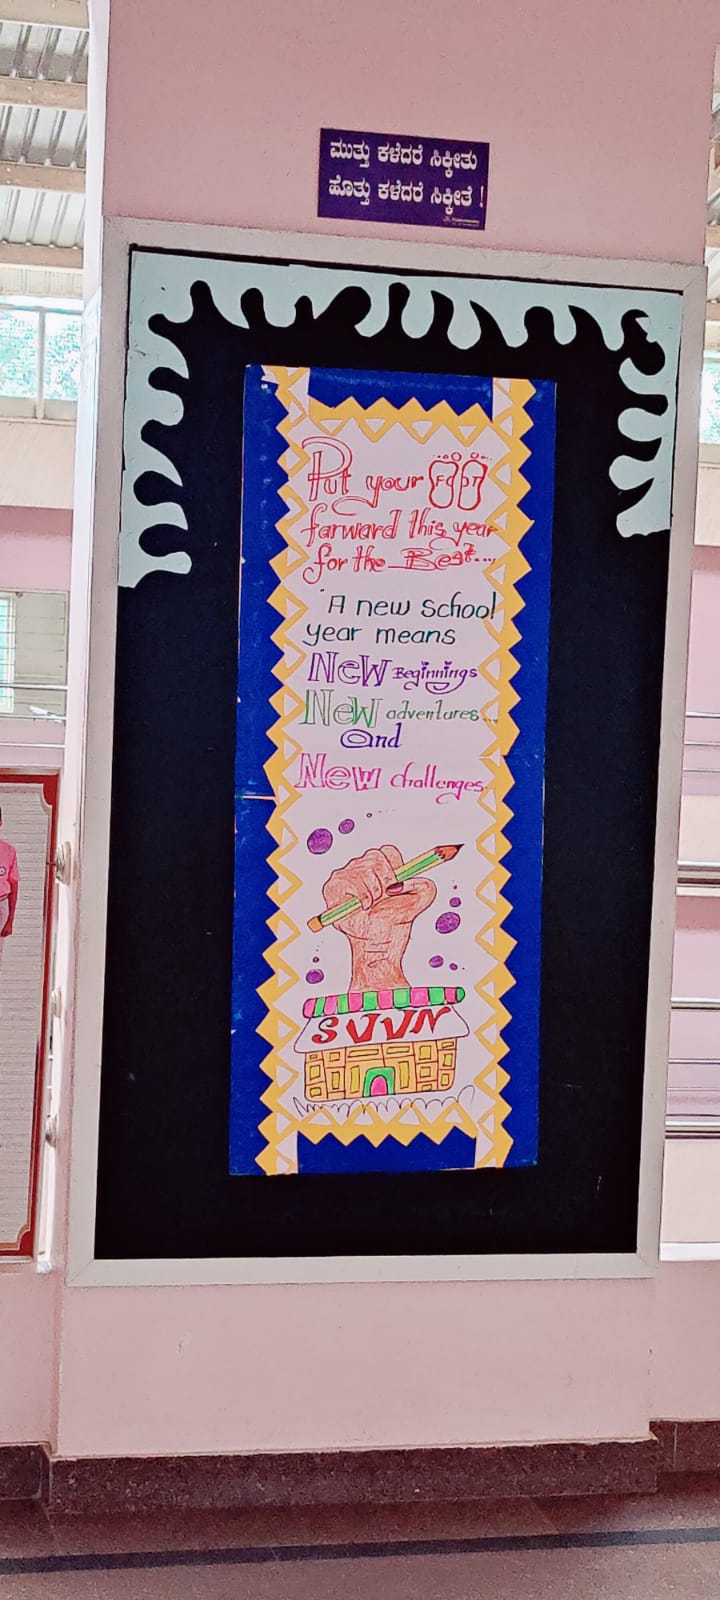 ಮುತ್ತು ಕಳೆದರೆ ಸಿಕ್ಕೀತು
ಹೊತ್ತು ಕಳೆದರೆ ಸಿಕ್ಕೀತೆ !
Put your FOOT
farward this year
for the Best...
"A new school
year means
New Beginnings
New adventures...
And
New challenges
SVVN